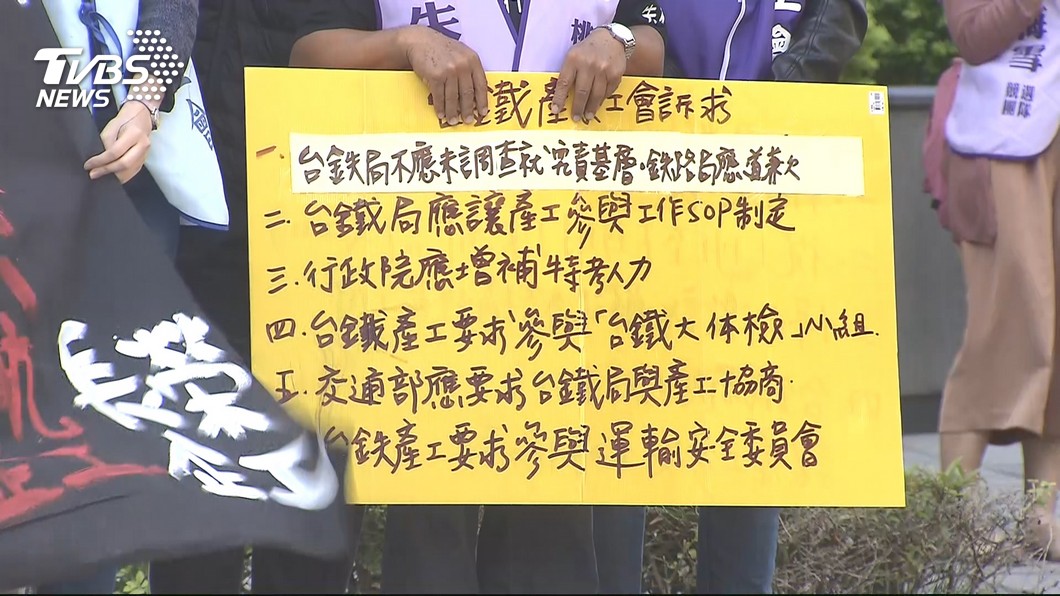 TVBS
NEWS
台鐵產業工會訴求
一. 台鉄局不應未調查就究責基層.鉄路局應道歉
二. 台鐵局應讓產工參與工作SOP制定
三. 行政院應增補特考人力
四. 台鐵產工要求參與「台鐵大体檢」小組.
五. 交通部應要求台鐵局與產工協商.
台鉄產工要求參與運輸安全委員會
競選
團隊